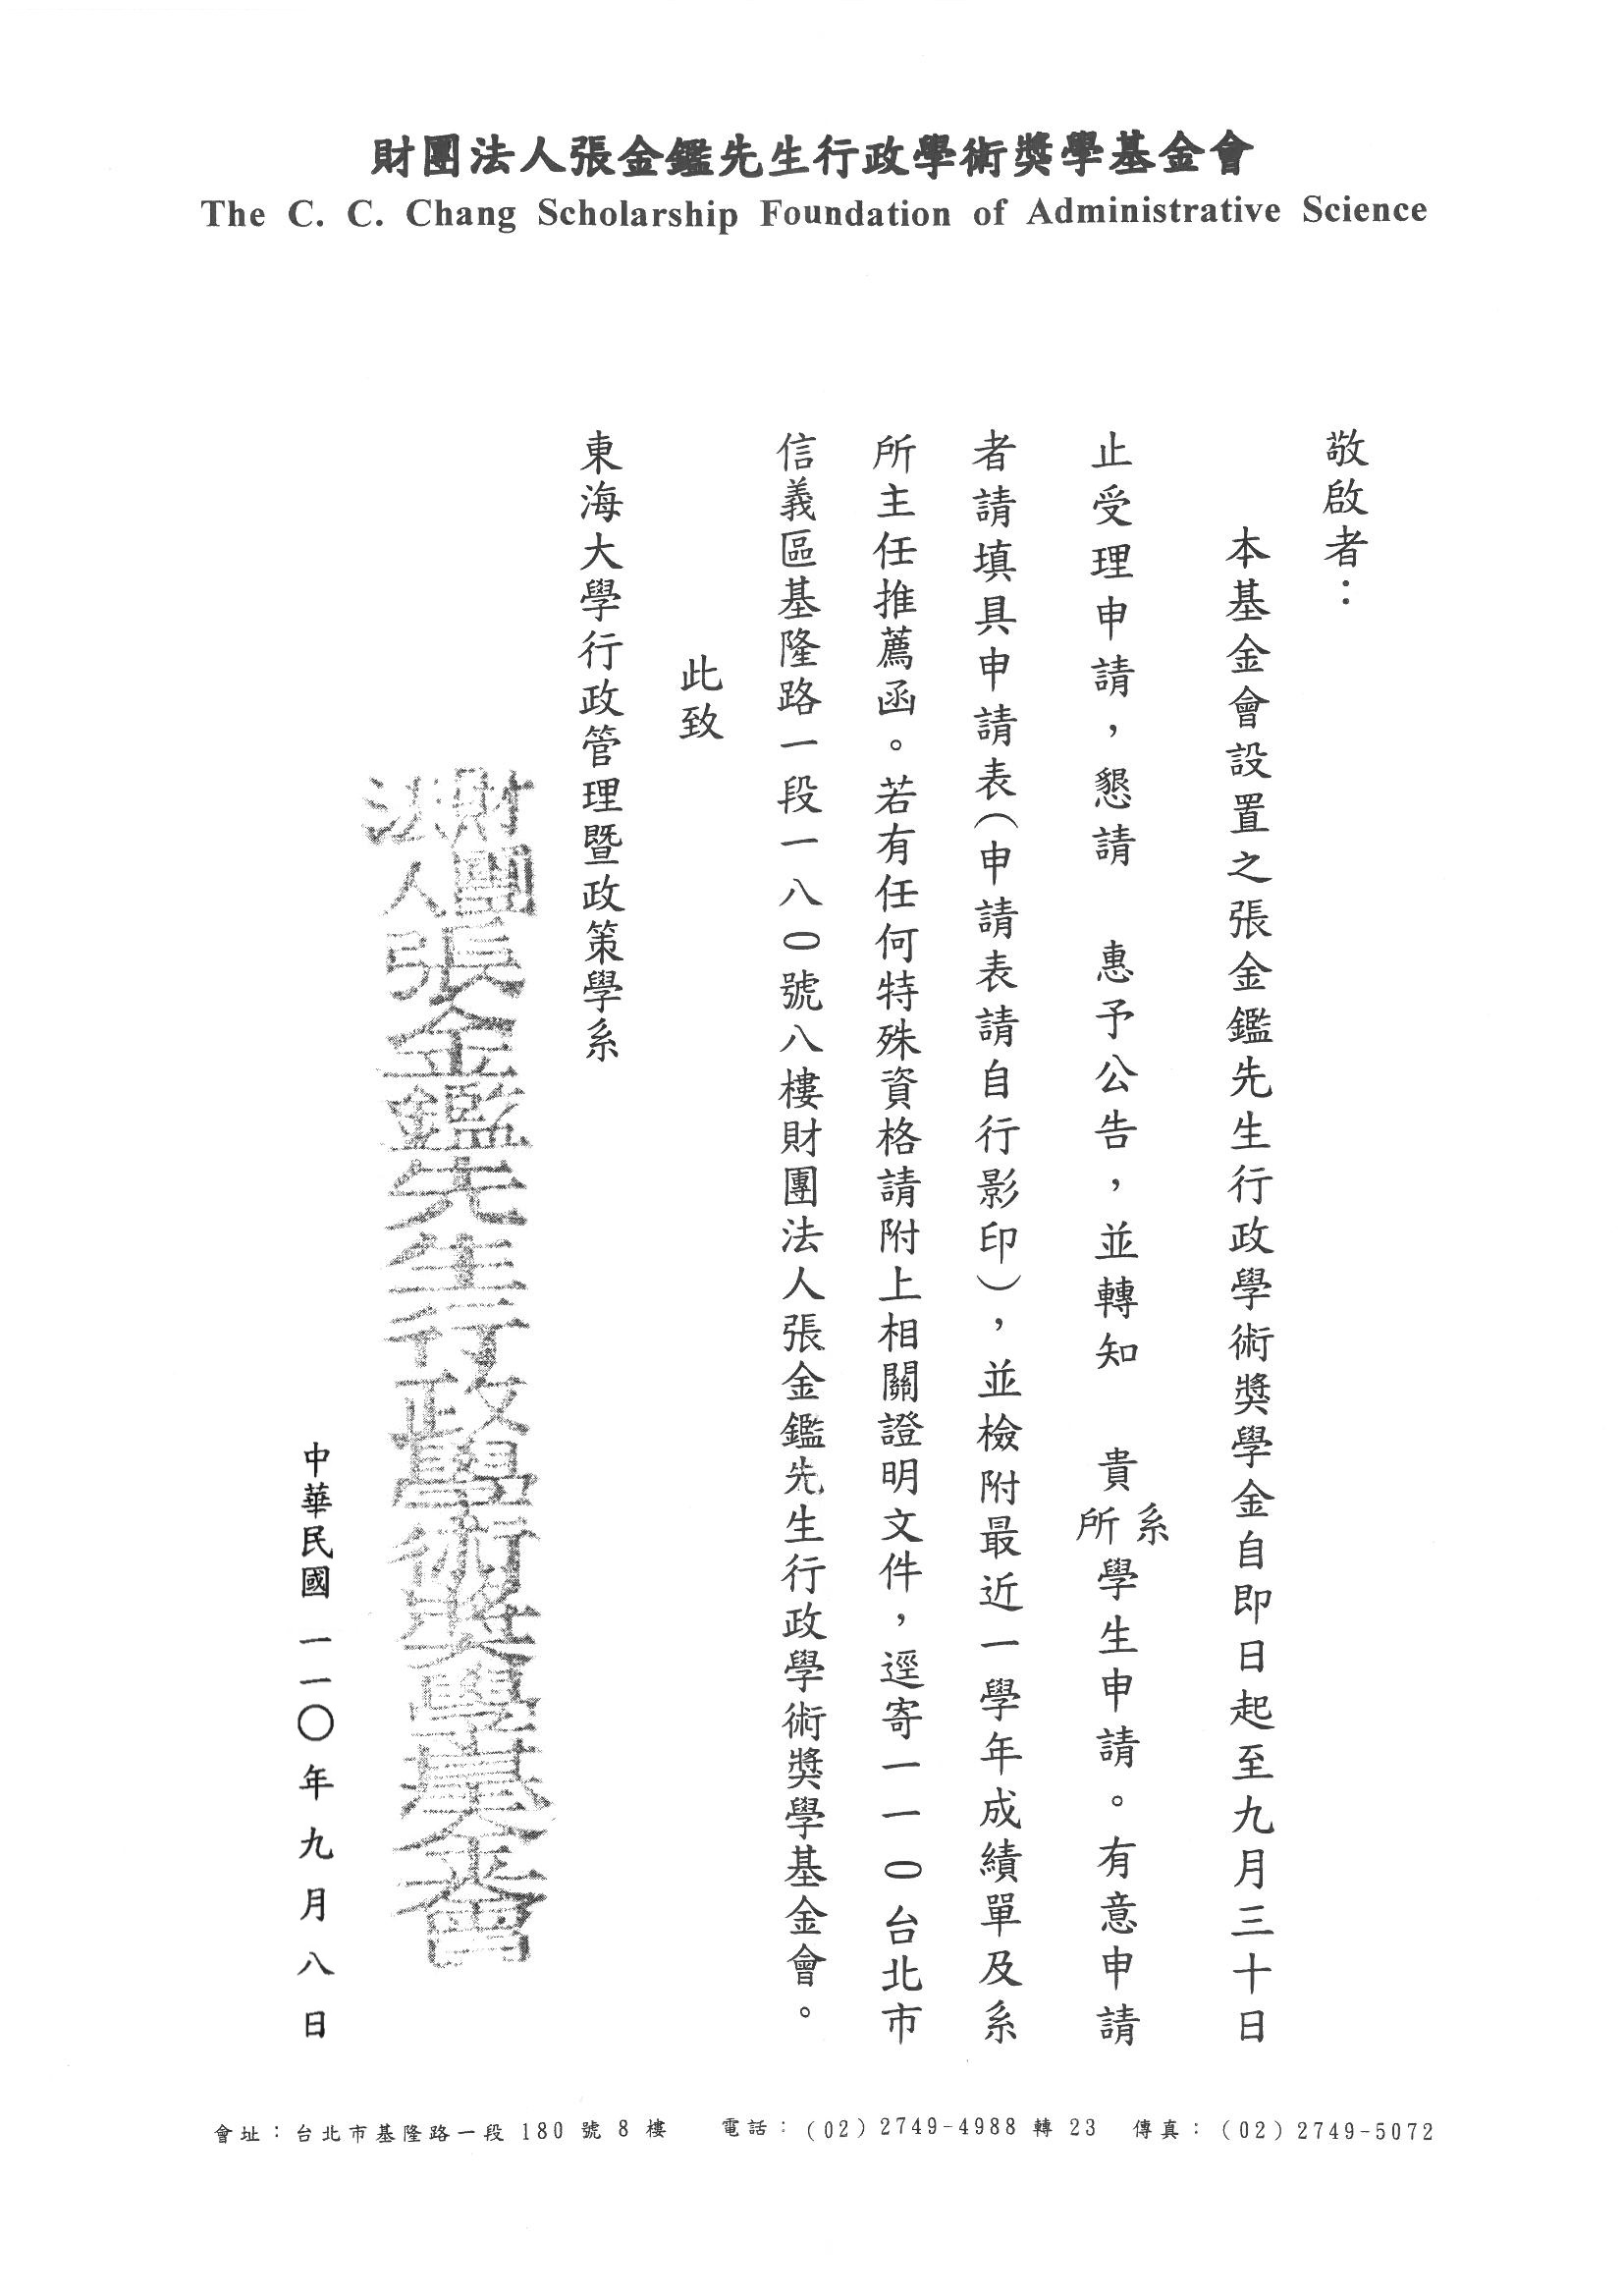 財團法人張金鑑先生行政學術獎學基金會
The C. C. Chang Scholarship Foundation of Administrative Science
敬啟者：
本基金會設置之張金鑑先生行政學術獎學金自即日起至九月三十日
止受理申請，懇請 惠予公告，並轉知 貴系所學生申請。有意申請
者請填具申請表（申請表請自行影印），並檢附最近一學年成績單及系
所主任推薦函。若有任何特殊資格請附上相關證明文件，逕寄一一０台北市
信義區基隆路一段一八０號八樓財團法人張金鑑先生行政學術獎學基金會。
此致
東海大學行政管理暨政策學系
財團法人張金鑑先生行政學術獎學基金會
中華民國一一〇年九月八日
會址：台北市基隆路一段 180 號 8 樓 電話：(02)2749-4988 轉 23 傳真：(02)2749-5072